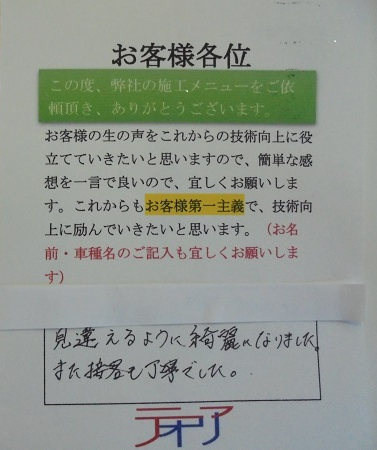 お客様各位
この度、弊社の施工メニューをご依
頼頂き、ありがとうございます。
お客様の生の声をこれからの技術向上に役
立てていきたいと思いますので、簡単な感
想を一言で良いので、宜しくお願いしま
す。これからもお客様第一主義で、技術向
上に励んでいきたいと思います。（お名
前・車種名のご記入も宜しくお願いしま
す）
見違えるように綺麗になりました。
また接客も丁寧でした。
テオリア